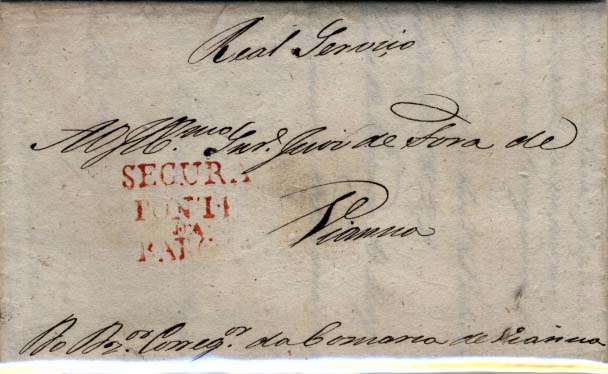 Real Serviço
Ao Illmo Snr. Juiz de Fora de
SEGURA
PONTE
DA
BAR
Vianna
Do Dzor. Corregor. da Comarca de Vianna